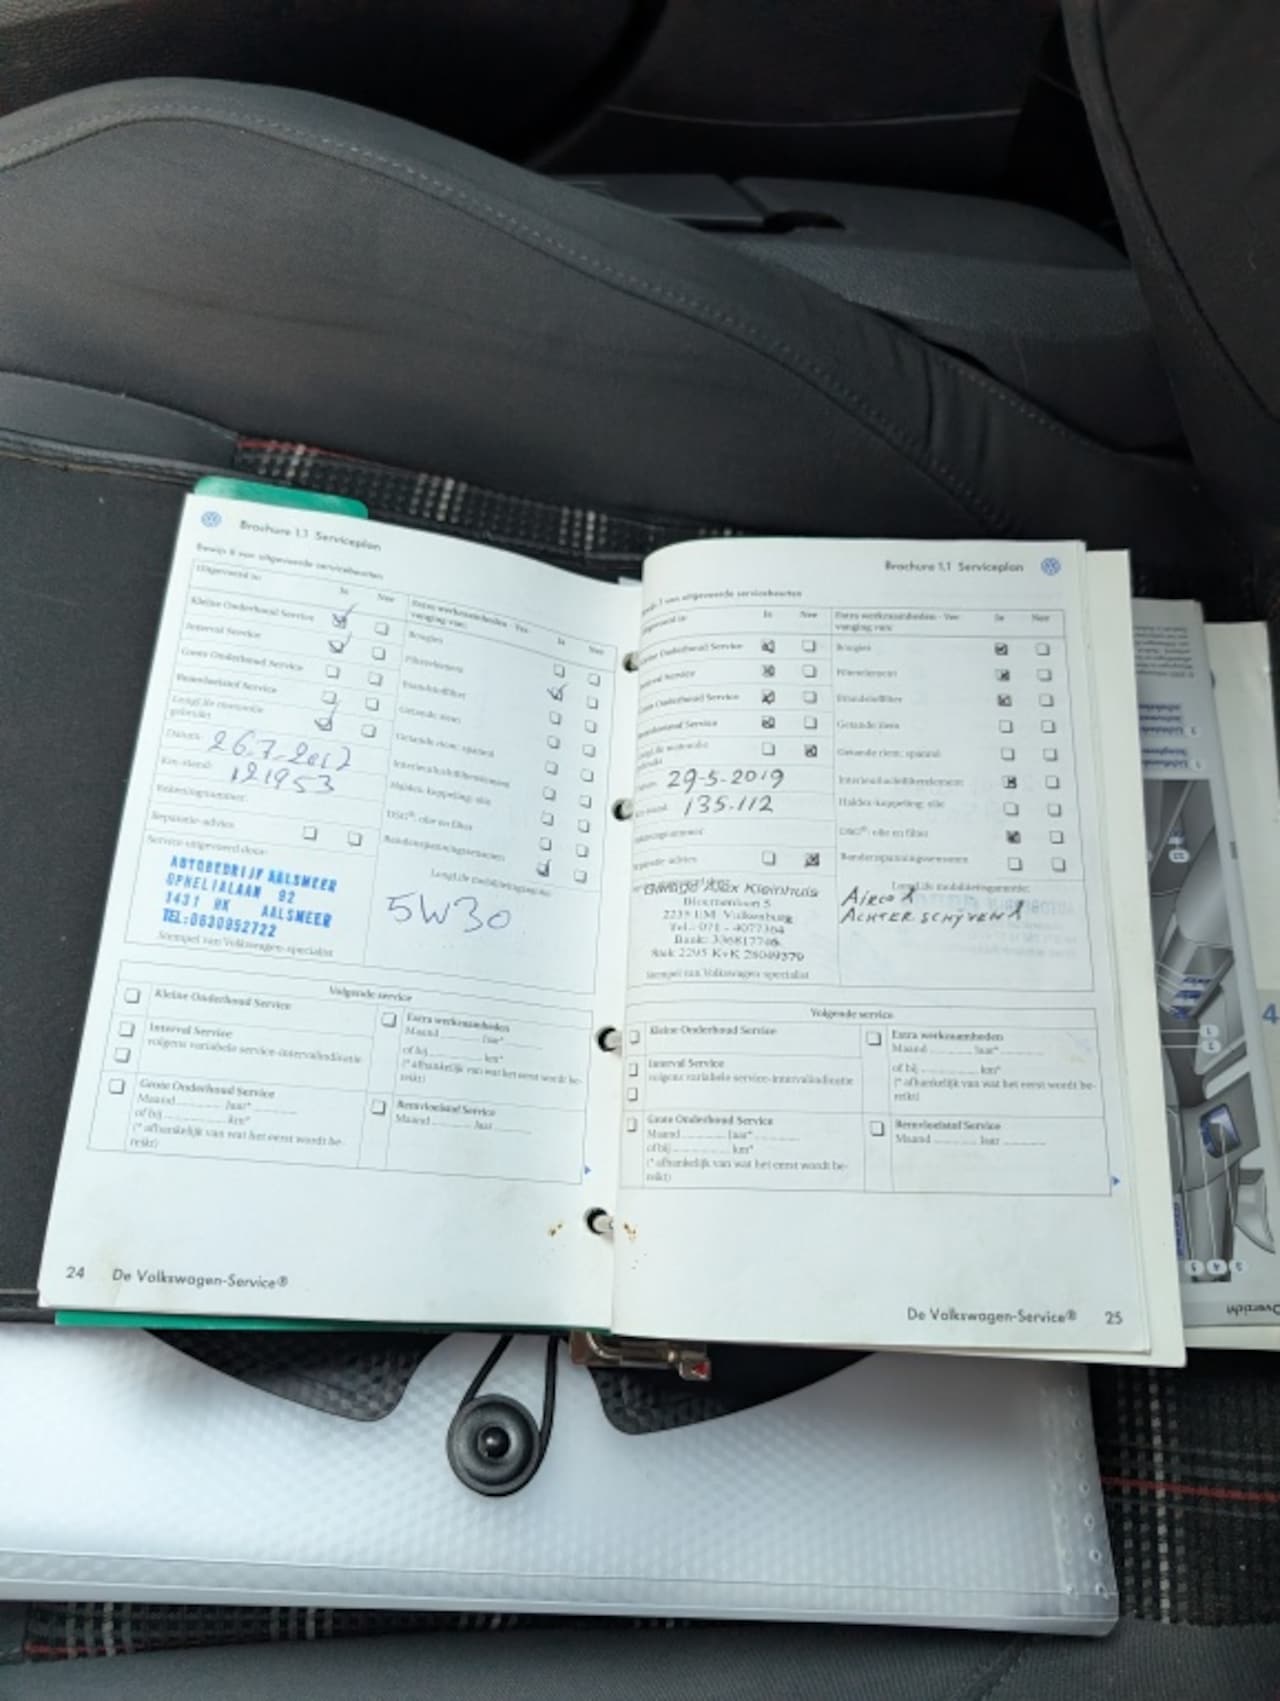 Brochure 1.1 Serviceplan
Bewijs 6 van uitgevoerde servicebeurten
Uitgevoerd is:
Ja
Nee
Extra werkzaamheden - Ver-
vanging van:
Ja
Nee
Kleine Onderhoud Service
Interval Service
Grote Onderhoud Service
Remvloeistof Service
LongLife motorolie
gebruikt
Datum: 26.7.2017
Km-stand: 121953
Rekeningnummer:
Reparatie-advies
Service uitgevoerd door:
AUTOBEDRIJF AALSMEER
OPHELIALAAN 92
1431 HK AALSMEER
TEL:0630952722
Stempel van Volkswagen-specialist
Bougies
Filterelement
Brandstoffilter
Getande riem
Getande riem: spanrol
Interieurluchtfilterelement
Haldex-koppeling: olie
DSG®: olie en filter
Bandenspanningssensoren
LongLife mobiliteitsgarantie:
5W30
Volgende service
Kleine Onderhoud Service
Interval Service
volgens variabele service-intervalindicatie
Grote Onderhoud Service
Maand ............ Jaar* ............
of bij ............ km*
(* afhankelijk van wat het eerst wordt be-
reikt)
Extra werkzaamheden
Maand ............ Jaar* ............
of bij ............ km*
(* afhankelijk van wat het eerst wordt be-
reikt)
Remvloeistof Service
Maand ............ Jaar ............
24 De Volkswagen-Service®
Brochure 1.1 Serviceplan
7 van uitgevoerde servicebeurten
Ja
Nee
Extra werkzaamheden - Ver-
vanging van:
Ja
Nee
Kleine Onderhoud Service
Service
Grote Onderhoud Service
Remvloeistof Service
LongLife motorolie
29-5-2019
135.112
Garage Alex Kleinhuis
Bloemenlaan 5
2235 EM Valkenburg
Tel.: 071 - 4077364
Bank: 336817746
KvK 28049379
Stempel van Volkswagen-specialist
Bougies
Filterelement
Brandstoffilter
Getande riem
Getande riem: spanrol
Interieurluchtfilterelement
Haldex-koppeling: olie
DSG®: olie en filter
Bandenspanningssensoren
LongLife mobiliteitsgarantie:
AIRCO X
ACHTER SCHIJVEN X
Volgende service
Kleine Onderhoud Service
Interval Service
volgens variabele service-intervalindicatie
Grote Onderhoud Service
Maand ............ Jaar* ............
of bij ............ km*
(* afhankelijk van wat het eerst wordt be-
reikt)
Extra werkzaamheden
Maand ............ Jaar* ............
of bij ............ km*
(* afhankelijk van wat het eerst wordt be-
reikt)
Remvloeistof Service
Maand ............ Jaar ............
De Volkswagen-Service® 25
4
Overzicht